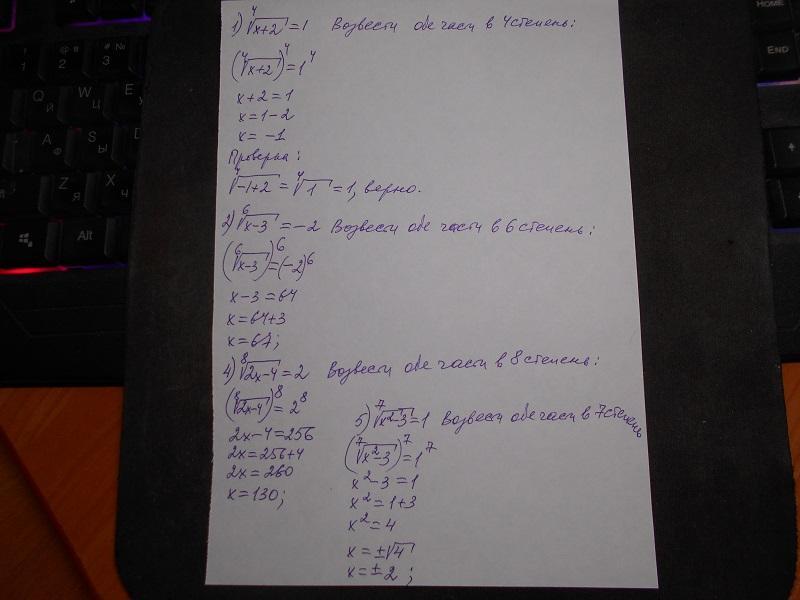 1) ⁴√(x+2) = 1 Возвести обе части в 4 степень:
(⁴√(x+2))⁴ = 1⁴
x+2=1
x=1-2
x= -1
Проверка:
⁴√(-1+2) = ⁴√1 = 1, верно.
2) ⁶√(x-3) = -2 Возвести обе части в 6 степень:
(⁶√(x-3))⁶ = (-2)⁶
x-3=64
x=64+3
x=67;
4) ⁸√(2x-4) = 2 Возвести обе части в 8 степень:
(⁸√(2x-4))⁸ = 2⁸
2x-4=256
2x=256+4
2x=260
x=130;
5) ⁷√(x²-3) = 1 Возвести обе части в 7 степень
(⁷√(x²-3))⁷ = 1⁷
x²-3=1
x²=1+3
x²=4
x=±√4
x=±2;
HOME
END
Q Й
W Ц
E У
A Ф
S Ы
Z Я
X Ч
Alt
! 1
@ " 2
# № 3